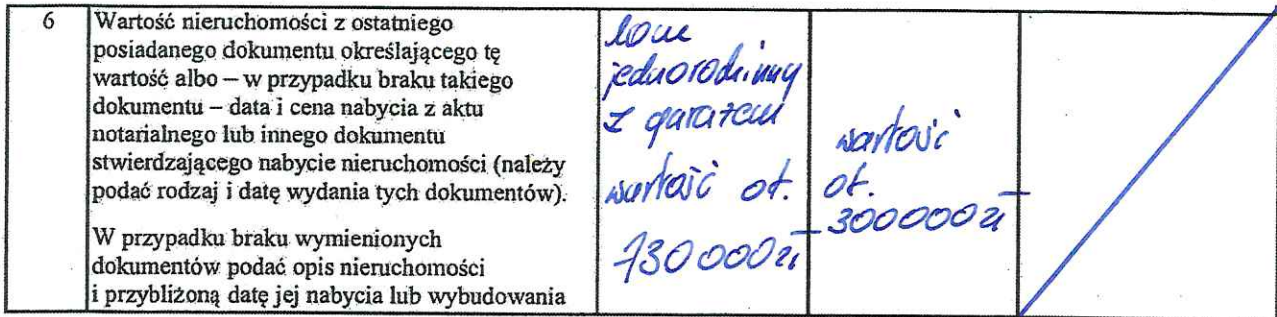 6
Wartość nieruchomości z ostatniego
posiadanego dokumentu określającego tę
wartość albo – w przypadku braku takiego
dokumentu – data i cena nabycia z aktu
notarialnego lub innego dokumentu
stwierdzającego nabycie nieruchomości (należy
podać rodzaj i datę wydania tych dokumentów).
W przypadku braku wymienionych
dokumentów podać opis nieruchomości
i przybliżoną datę jej nabycia lub wybudowania
dom
jednorodzinny
z garażem
wartość ok.
730 000 zł
wartość
ok.
300000 zł